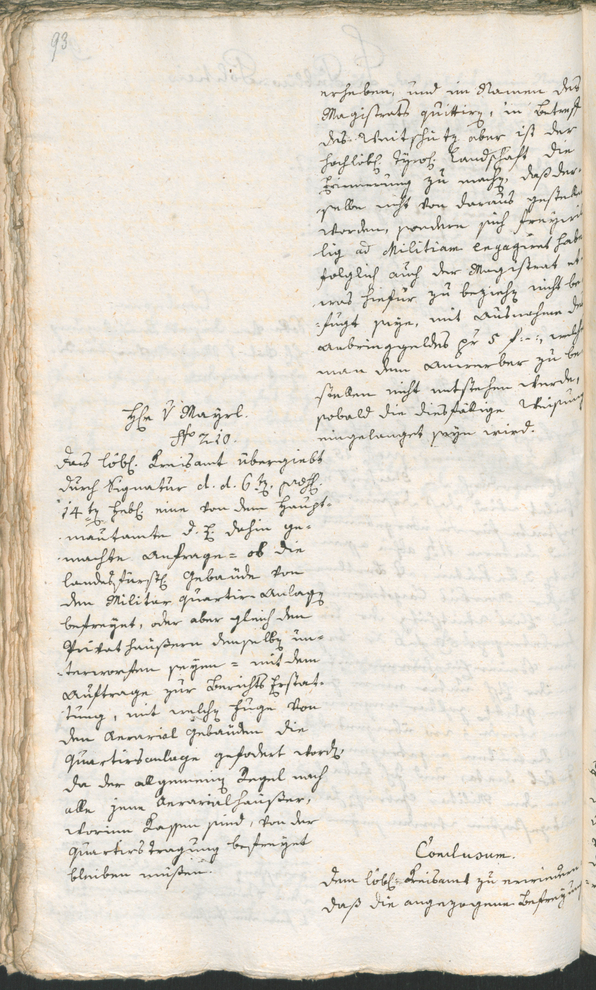 93
erheben, und im Namen des
Magistrats quittirn, in Betreff
des aber ist der
hochlöbl. Tyrol. Landschaft die
Erinnerung zu machen, daß der-
selbe nicht von daraus gestellt
worden, sondern sich freywil
lig ad Militiam engagiret habe
folglich auch der Magistrat et
was hiefür zu beziehen nicht be
fugt seye, mit Ausnahme des
Anbringgeldes pr 5 f.-:, welche
man dem Anwerber zu be
stellen nicht entstehen werde,
sobald die diesfälige Weisung
eingelanget seyn wird.
H. V Mayrl.
No 210.
Das löbl. Kreisamt übergiebt
durch Signatur d. d. 6tn,
14tn eine von dem Haupt-
mautamte d. dahin ge-
machte Anfrage = ob die
landesfürstl. Gebäude von
den Militar quartirs Anlagen
befreyet, oder aber gleich den
Privathäußern denselben un-
terworffen seyen = mit dem
Auftrage zur Berichts Erstat-
tung, mit welchem Fuge von
den Aerarial Gebäuden die
Quartirsanlage gefodert worden
da der allgemeinen Regel nach
alle jene Aerarialhäußer,
worinn Kassen sind, von der
Quartirstragung befreyet
bleiben müßen.
Conclusum.
Dem löbl. Kreisamt zu erwiedern
daß die angezogene Befreyung